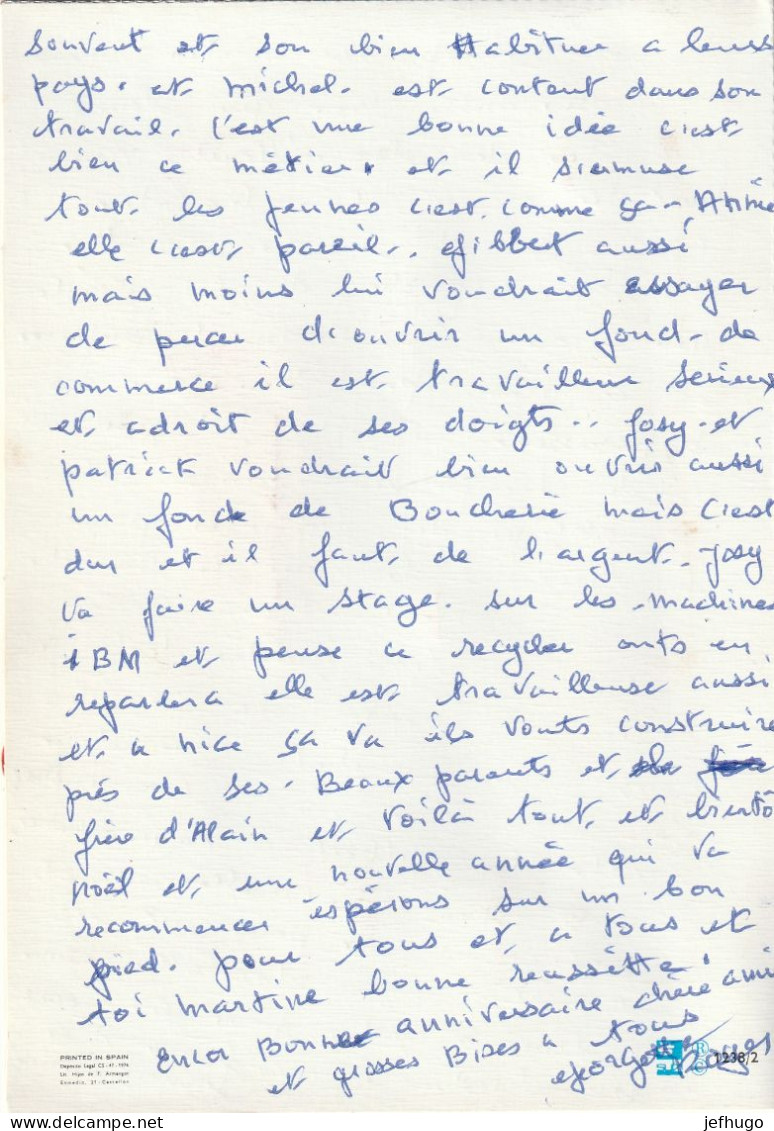 souvent et son bien Habituer a leurs
pays. et michel. est content dans son
travail. c'est une bonne idée c'est
bien ce métier. et il s'amuse
tout les jeunes c'est comme ça -
elle c'est pareil. gilbert aussi
mais moins lui voudrait essayer
de d'ouvrir un fond - de
commerce il est travailleur serieux
et adroit de ses doigts.. josy - et
patrick voudrait bien ouvrir aussi
un fond de Boucherie mais c'est
dur et il faut de l'argent. josy
va faire un stage. sur les machines
IBM et pense a recycler en
reparlera elle est travailleuse aussi
et a nice ça va ils vonts construire
près de ses. Beaux parents et
frère d'Alain et voilà tout et bientô
noël et une nouvelle année qui va
recommencer espérons sur un bon
pied. pour tous et a tous et
toi martine bonne reussitte
Encor Bonne anniversaire chère amie
et grosses Bises a tous
georgette
PRINTED IN SPAIN
Deposito Legal CS-41-1976
Lit. Hijos de F. Armengot
Enmedio, 21-Castellon
1238/2
jefhugo